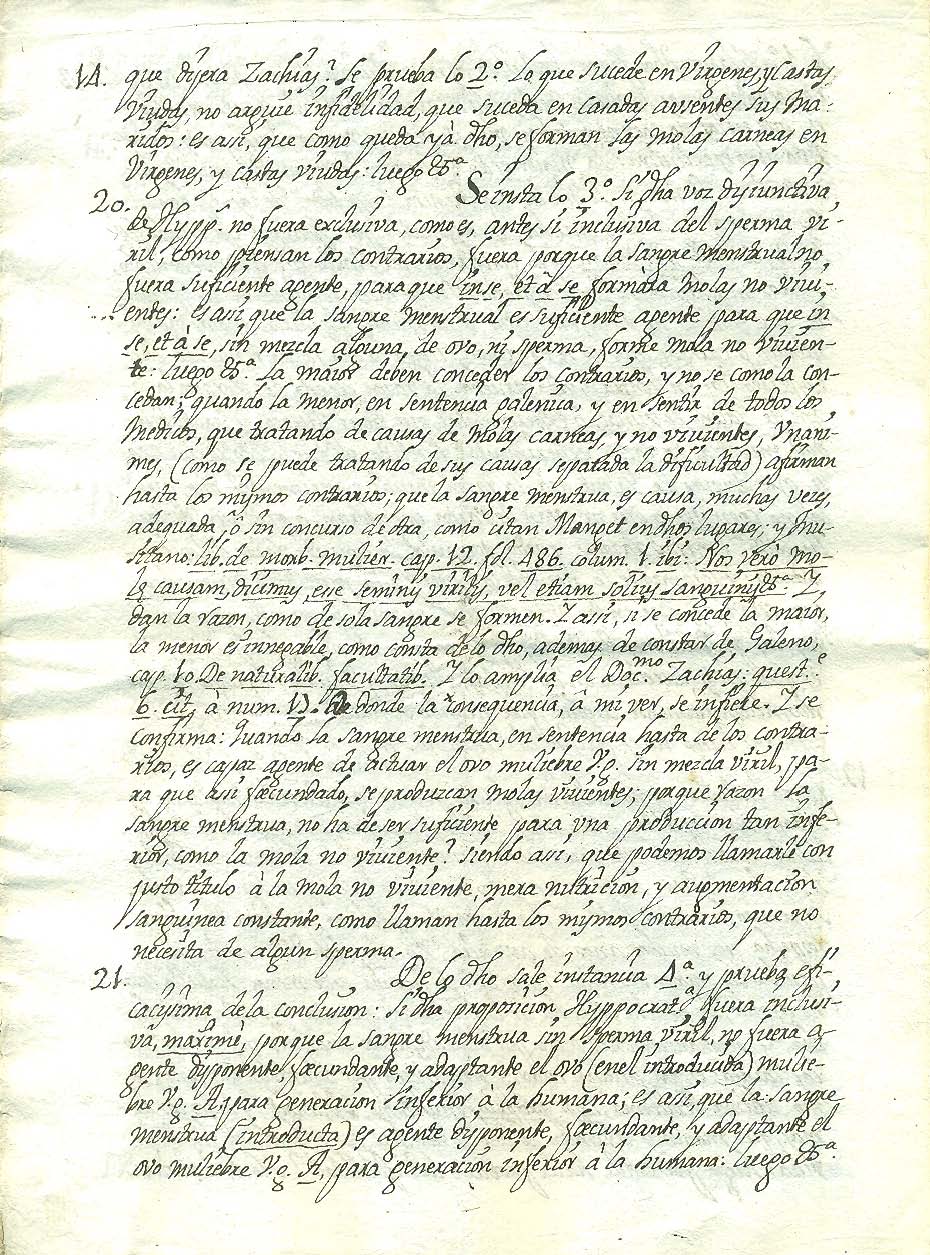 14. que dijera Zachias? Se prueba lo 2.º Lo que sucede en Virgenes, y Castas
Viudas, no arguie infidelidad, que suceda en Casadas ausentes sus Ma-
ridos: es asi, que como queda yà dho, se forman las molas carneas en
Virgenes, y castas viudas: luego &.ª
20. Se insta lo 3.º Si dha voz disiunctiva
de Hypp.º no fuera exclusiva, como es, antes si inclusiva del sperma vi-
ril, como piensan los contrarios, fuera porque la sangre menstrual no
fuera suficiente agente, para que in se, et à se formàra Molas no vivi-
entes: es asi que la sangre menstrual es suficiente agente para que in
se, et à se, sin mezcla alguna, de ovo, ni sperma, forme mola no vivien-
te: luego &.ª La maior deben conceder los contrarios, y no se como la con-
cedan; quando la menor, en sentencia galenica, y en sentir de todos los
Medicos, que tratando de causas de Molas carneas, y no vivientes, Vnani-
mes, (como se puede tratando de sus causas separada la dificultad) afirman
hasta los mismos contrarios; que la sangre menstrua, es causa, muchas vezes,
adequada, ò sin concurso de otra, como citan Manget en dhos lugares; y
sitano: lib. de morb. mulier. cap. 12. fol. 486. colum. 1. ibi: Nos verò mo-
lę causam, dicimus, esse seminis virilis, vel etiam solius sanguinis &.ª Y
dan la razon, como de sola sangre se formen. Y assi, si se concede la maior,
la menor es innegable, como consta de lo dho, ademas de constar de Galeno,
cap. 10. De naturalib. facultatib. Y lo amplia el Doc.mo Zachias: quest.e
6. cit, à num. 13. de donde la consequencia, à mi ver, se infiere. Y se
Confirma: Quando la sangre menstrua, en sentencia hasta de los contra-
rios, es capaz agente de actuar el ovo muliebre V.g. sin mezcla viril, pa-
ra que asi fœcundado, se produzcan molas vivientes; porque razon la
sangre menstrua, no ha de ser suficiente para vna produccion tan infe-
rior, como la mola no viviente? siendo asi, que podemos llamarle con
justo titulo à la mola no viviente, mera nutricion, y augmentacion
sanguinea constante, como llaman hasta los mismos contrarios, que no
necesita de algun sperma.
21. De lo dho sale instancia 4.ª y prueba efi-
cacisima de la conclusion: Si dha proposicion Hyppocrat.ª fuera inclusi-
va, maximè, porque la sangre menstrua sin sperma viril, no fuera a-
gente disponente, fœcundante, y adaptante el ovo (en el introducida) mulie-
bre V.g. A, para generacion inferior à la humana; es asi, que la sangre
menstrua (introducta) es agente disponente, fœcundante, y adaptante el
ovo muliebre V.g. A, para generacion inferior à la humana: luego &.ª